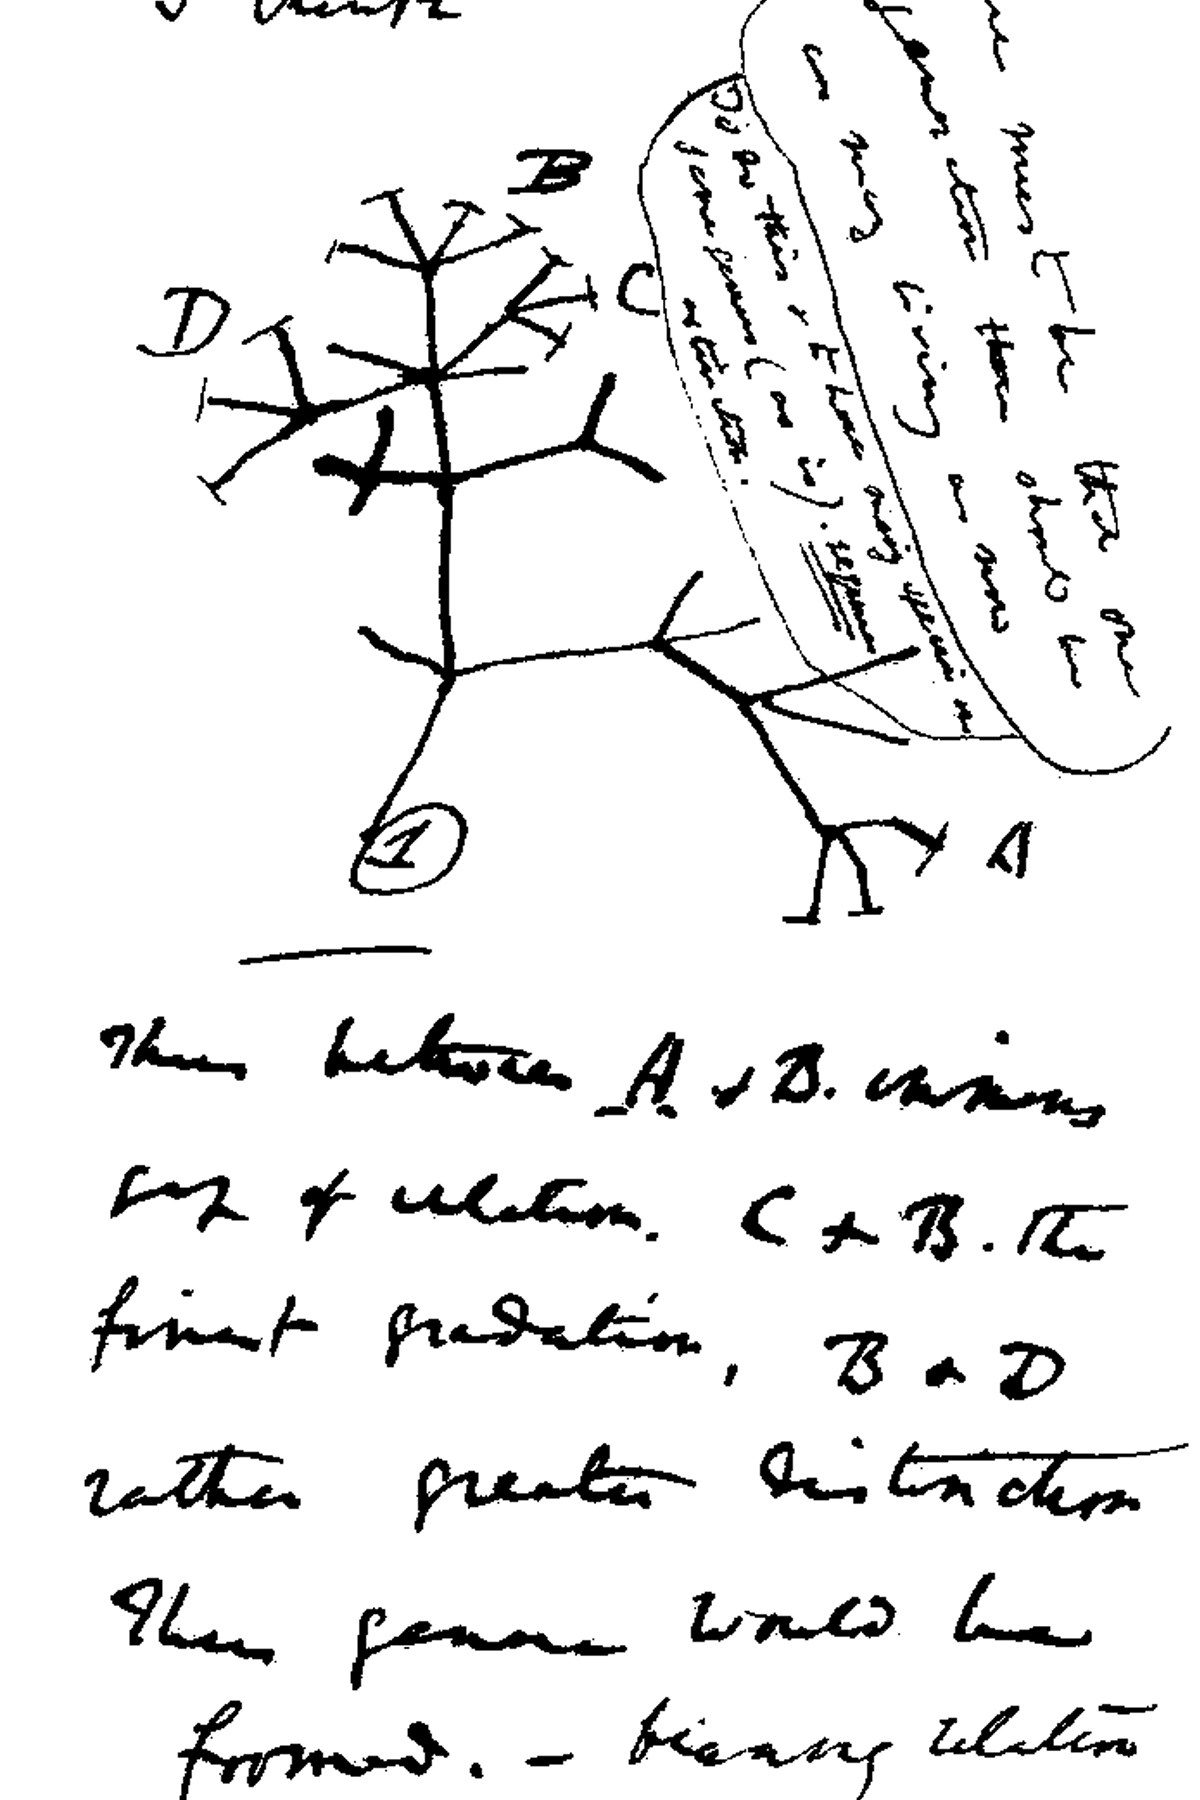 I think
B
C
D
A
1
must be that one
generation then should be
as many living as now
To do this & to have many species in
same genus (as is). requires
extinction.
Thus between A & B. immens
gap of relation. C & B. The
finest gradation, B & D
rather greater distinction
Thus genera would be
formed. — bearing relation